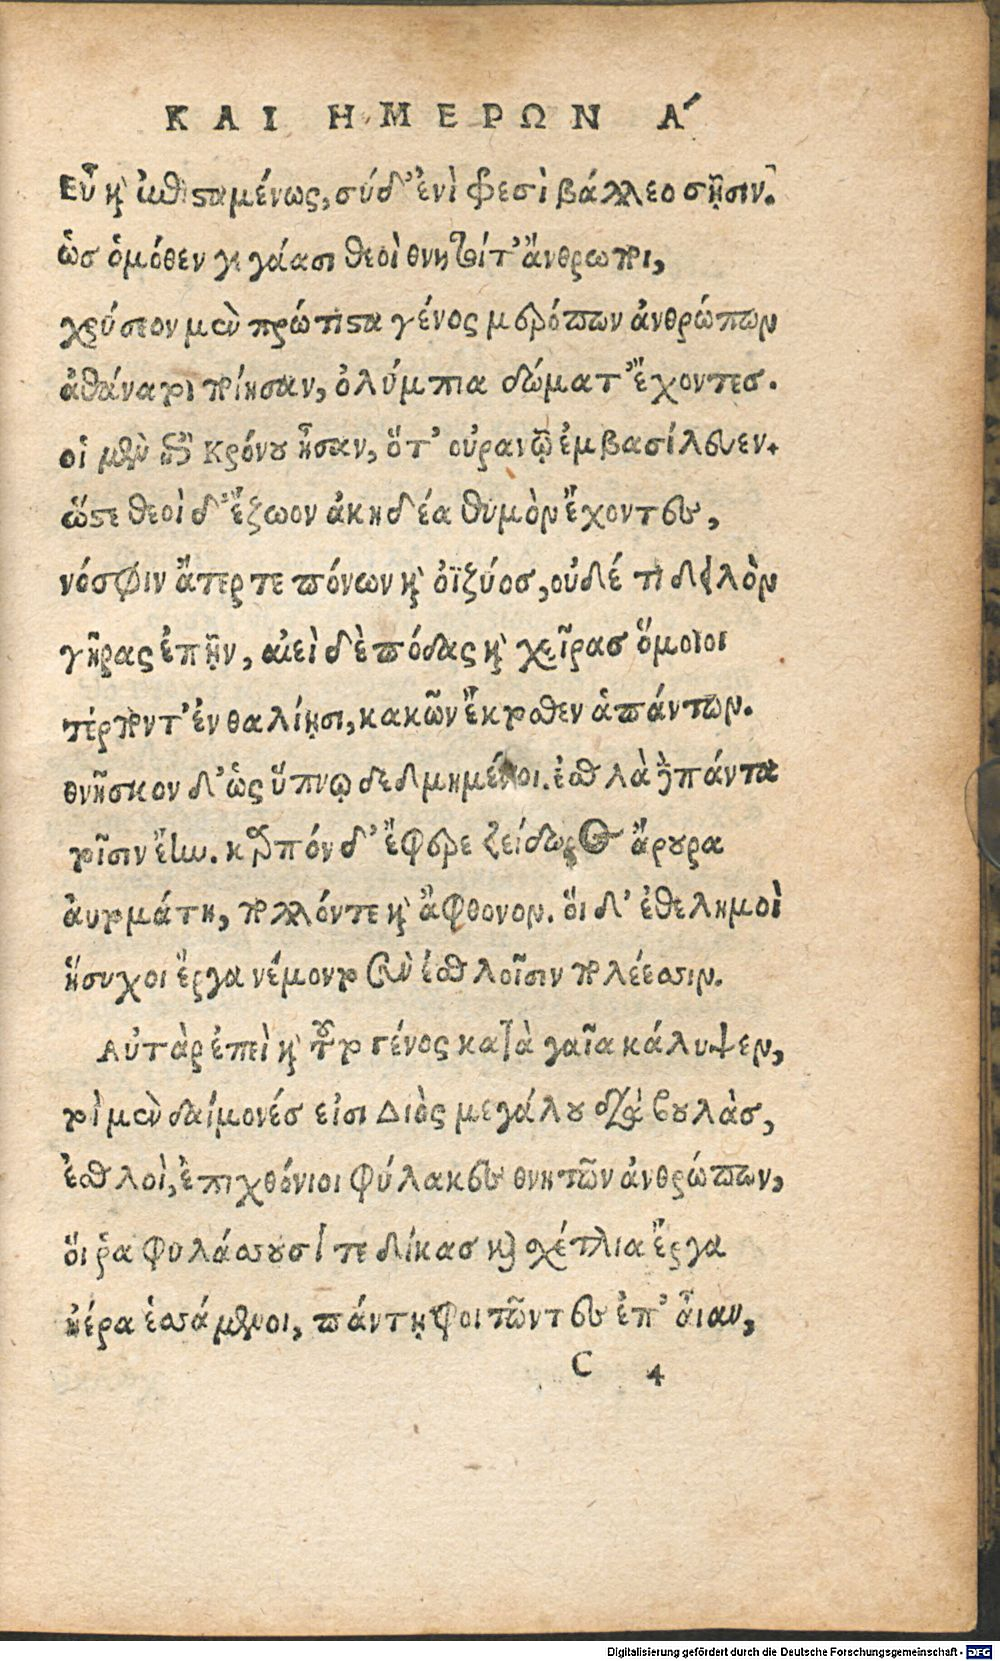 ΚΑΙ ΗΜΕΡΩΝ Α´
Εὖ καὶ ἐπισταμένως, σύ δ' ἐνὶ φρεσὶ βάλλεο σῇσιν.
ὡς ὁμόθεν γεγάασι θεοὶ θνητοί τ' ἄνθρωποι,
χρύσεον μὲν πρώτιστα γένος μερόπων ἀνθρώπων
ἀθάνατοι ποίησαν, ὀλύμπια δώματ' ἔχοντες.
οἱ μὲν ἐπὶ Κρόνου ἦσαν, ὅτ' οὐρανῷ ἐμβασίλευεν.
ὥστε θεοὶ δ' ἔζωον ἀκηδέα θυμὸν ἔχοντες,
νόσφιν ἄτερ τε πόνων καὶ ὀϊζύος, οὐδέ τι δειλὸν
γῆρας ἐπῆν, αἰεὶ δὲ πόδας καὶ χεῖρας ὅμοιοι
τέρποντ' ἐν θαλίῃσι, κακῶν ἔκτοθεν ἁπάντων.
θνῆσκον δ' ὡς ὕπνῳ δεδμημένοι. ἐσθλὰ δὲ πάντα
τοῖσιν ἔην. καρπόν δ' ἔφερε ζείδωρος ἄρουρα
ἀυτομάτη, πολλόν τε καὶ ἄφθονον. ὅι δ' ἐθελημοὶ
ἥσυχοι ἔργα νέμοντο σὺν ἐσθλοῖσιν πολέεσσιν.
Αὐτὰρ ἐπεὶ καὶ τοῦτο γένος κατὰ γαῖα κάλυψεν,
τοὶ μὲν δαίμονές εἰσι Διὸς μεγάλου διὰ βουλὰς,
ἐσθλοὶ, ἐπιχθόνιοι φύλακες θνητῶν ἀνθρώπων,
ὅι ῥα φυλάσσουσίν τε δίκας καὶ σχέτλια ἔργα
ἠέρα ἑσσάμενοι, πάντη φοιτῶντες ἐπ' αἶαν,
C 4
Digitalisierung gefördert durch die Deutsche Forschungsgemeinschaft - DFG